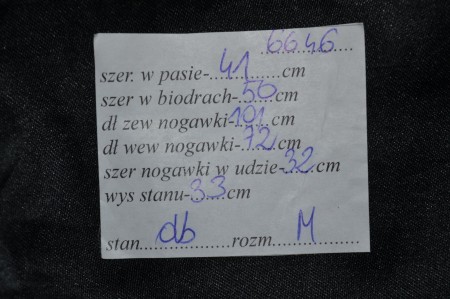 6646
szer. w pasie-41cm
szer w biodrach-50cm
dł zew nogawki-101cm
dł wew nogawki-72cm
szer nogawki w udzie-32cm
wys stanu-33cm
stan db rozm M